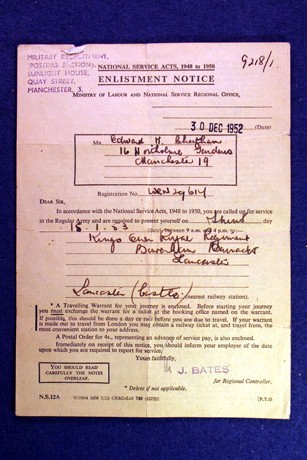 MILITARY RECRUITMENT,
(POSTING SECTION),
SUNLIGHT HOUSE,
QUAY STREET,
MANCHESTER, 3.
9218/1
NATIONAL SERVICE ACTS, 1948 to 1950
ENLISTMENT NOTICE
MINISTRY OF LABOUR AND NATIONAL SERVICE REGIONAL OFFICE,
30 DEC 1952 (Date)
MR Edward H.
16 Gardens
Manchester 19
Registration No.
DEAR SIR,
In accordance with the National Service Acts, 1948 to 1950, you are called up for service
in the Regular Army and are required to present yourself on Thurs day
15-1-53 (date), between 9 a.m. and
Kings Own Royal Regiment
Barracks
Lancaster
Lancaster (Castle) (nearest railway station).
* A Travelling Warrant for your journey is enclosed. Before starting your journey
you must exchange the warrant for a ticket at the booking office named on the warrant.
If possible, this should be done a day or two before you are due to travel. If your warrant
is made out to travel from London you may obtain a railway ticket at, and travel from, the
most convenient station to your address.
A Postal Order for 4s., representing an advance of service pay, is also enclosed.
Immediately on receipt of this notice, you should inform your employer of the date
upon which you are required to report for service.
Yours faithfully,
J. BATES
for Regional Controller.
YOU SHOULD READ
CAREFULLY THE NOTES
OVERLEAF.
* Delete if not applicable.
N.S.12A
[P.T.O